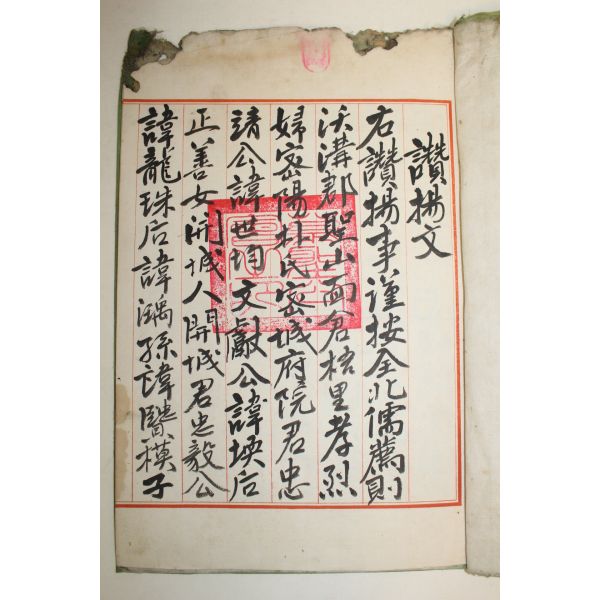 讚揚文
右讚揚事謹按全北儒薦則
沃溝郡聖山面倉梧里孝烈
婦密陽朴氏密城府院君忠
靖公諱世均文獻公諱㙉后
正善女開城人開城君忠毅公
諱龍珠后諱鴻孫諱賢模子